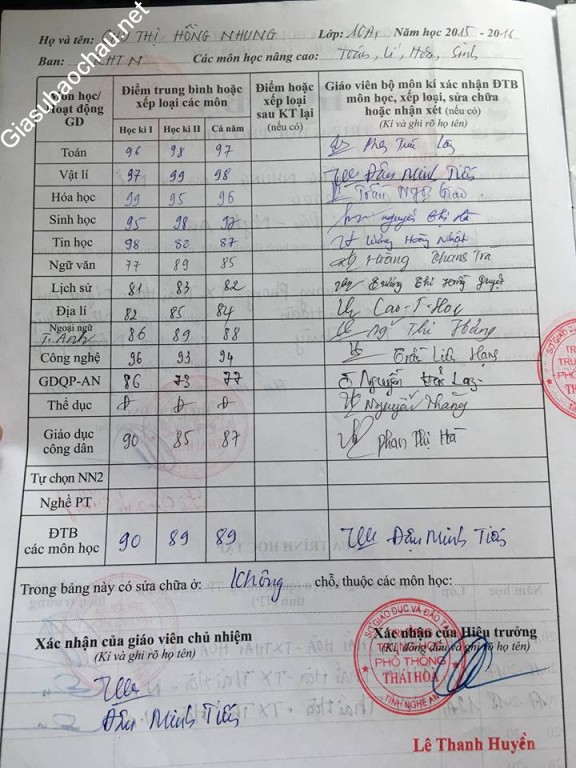 Giasubaochau.net
Họ và tên: THỊ HỒNG NHUNG Lớp: 10A1 Năm học 2015 - 2016
Ban: KHTN Các môn học nâng cao: Toán, Lí, Hóa, Sinh
Môn học/ Hoạt động GD
Điểm trung bình hoặc xếp loại các môn
Điểm hoặc xếp loại sau KT lại (nếu có)
Giáo viên bộ môn kí xác nhận ĐTB môn học, xếp loại, sửa chữa hoặc nhận xét (nếu có)
(Kí và ghi rõ họ tên)
Học kì I Học kì II Cả năm
Toán 96 98 97
Vật lí 97 99 98 Đậu Minh Tiến
Hóa học 99 95 96 Trần Ngọc Giao
Sinh học 95 98 97 Nguyễn Thị Hà
Tin học 98 82 87 Hoàng Nhật
Ngữ văn 77 89 85 Hoàng Thanh Trà
Lịch sử 81 83 82 Trương Thị Hồng Duyệt
Địa lí 82 85 84 Cao T Hoa
Ngoại ngữ T. Anh 86 89 88 Thị Hồng
Công nghệ 96 93 94 Trần Liên Hạng
GDQP-AN 86 73 77 Nguyễn
Thể dục Đ Đ Đ Nguyễn Thăng
Giáo dục công dân 90 85 87 Phan Thị Hà
Tự chọn NN2
Nghề PT
ĐTB các môn học 90 89 89 Đậu Minh Tiến
Trong bảng này có sửa chữa ở: Không chỗ, thuộc các môn học:
Xác nhận của giáo viên chủ nhiệm
(Kí và ghi rõ họ tên)
Đậu Minh Tiến
Xác nhận của Hiệu trưởng
(Kí, đóng dấu và ghi rõ họ tên)
SỞ GIÁO DỤC VÀ ĐÀO TẠO
TRƯỜNG
TRUNG HỌC
PHỔ THÔNG
THÁI HÒA
TỈNH NGHỆ AN
Lê Thanh Huyền